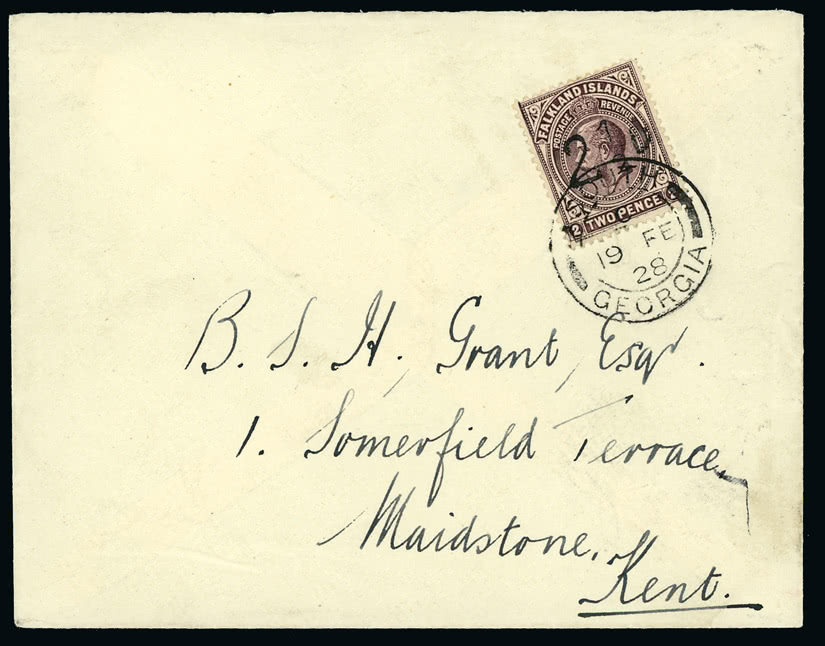 FALKLAND ISLANDS
POSTAGE REVENUE
2½D
2 TWO PENCE 2
SOUTH
19 FE
28
GEORGIA
B. S. H. Grant, Esqr.
1. Somerfield Terrace,
Maidstone,
Kent.